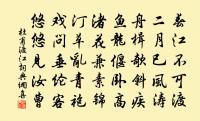 春江不可渡
二月已風濤
舟楫欹斜疾
魚龍偃臥高
渚花兼素錦
汀草亂青袍
戲問垂綸客
悠悠見汝曹
杜甫渡江詞典網喜